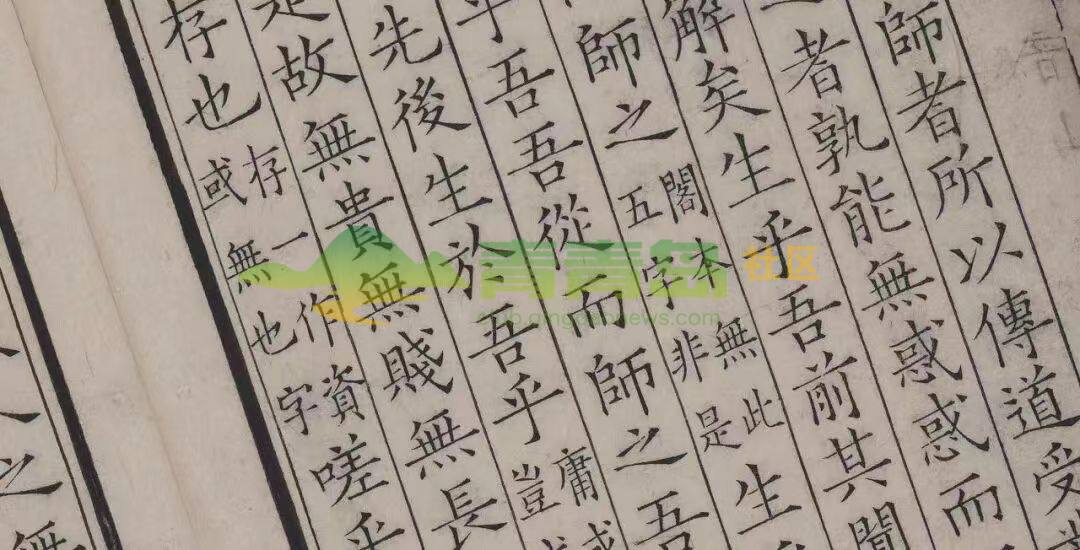 師者所以傳道受
者孰能無惑惑而
解矣生乎吾前其聞
師之
閣本無此
五字非是
生
乎吾吾從而師之吾
先後生於吾乎
庸或
豈
是故無貴無賤無長
存也
存一作資
或無也字
嗟乎
之無
青青岛 社区
club.qingdaonews.com